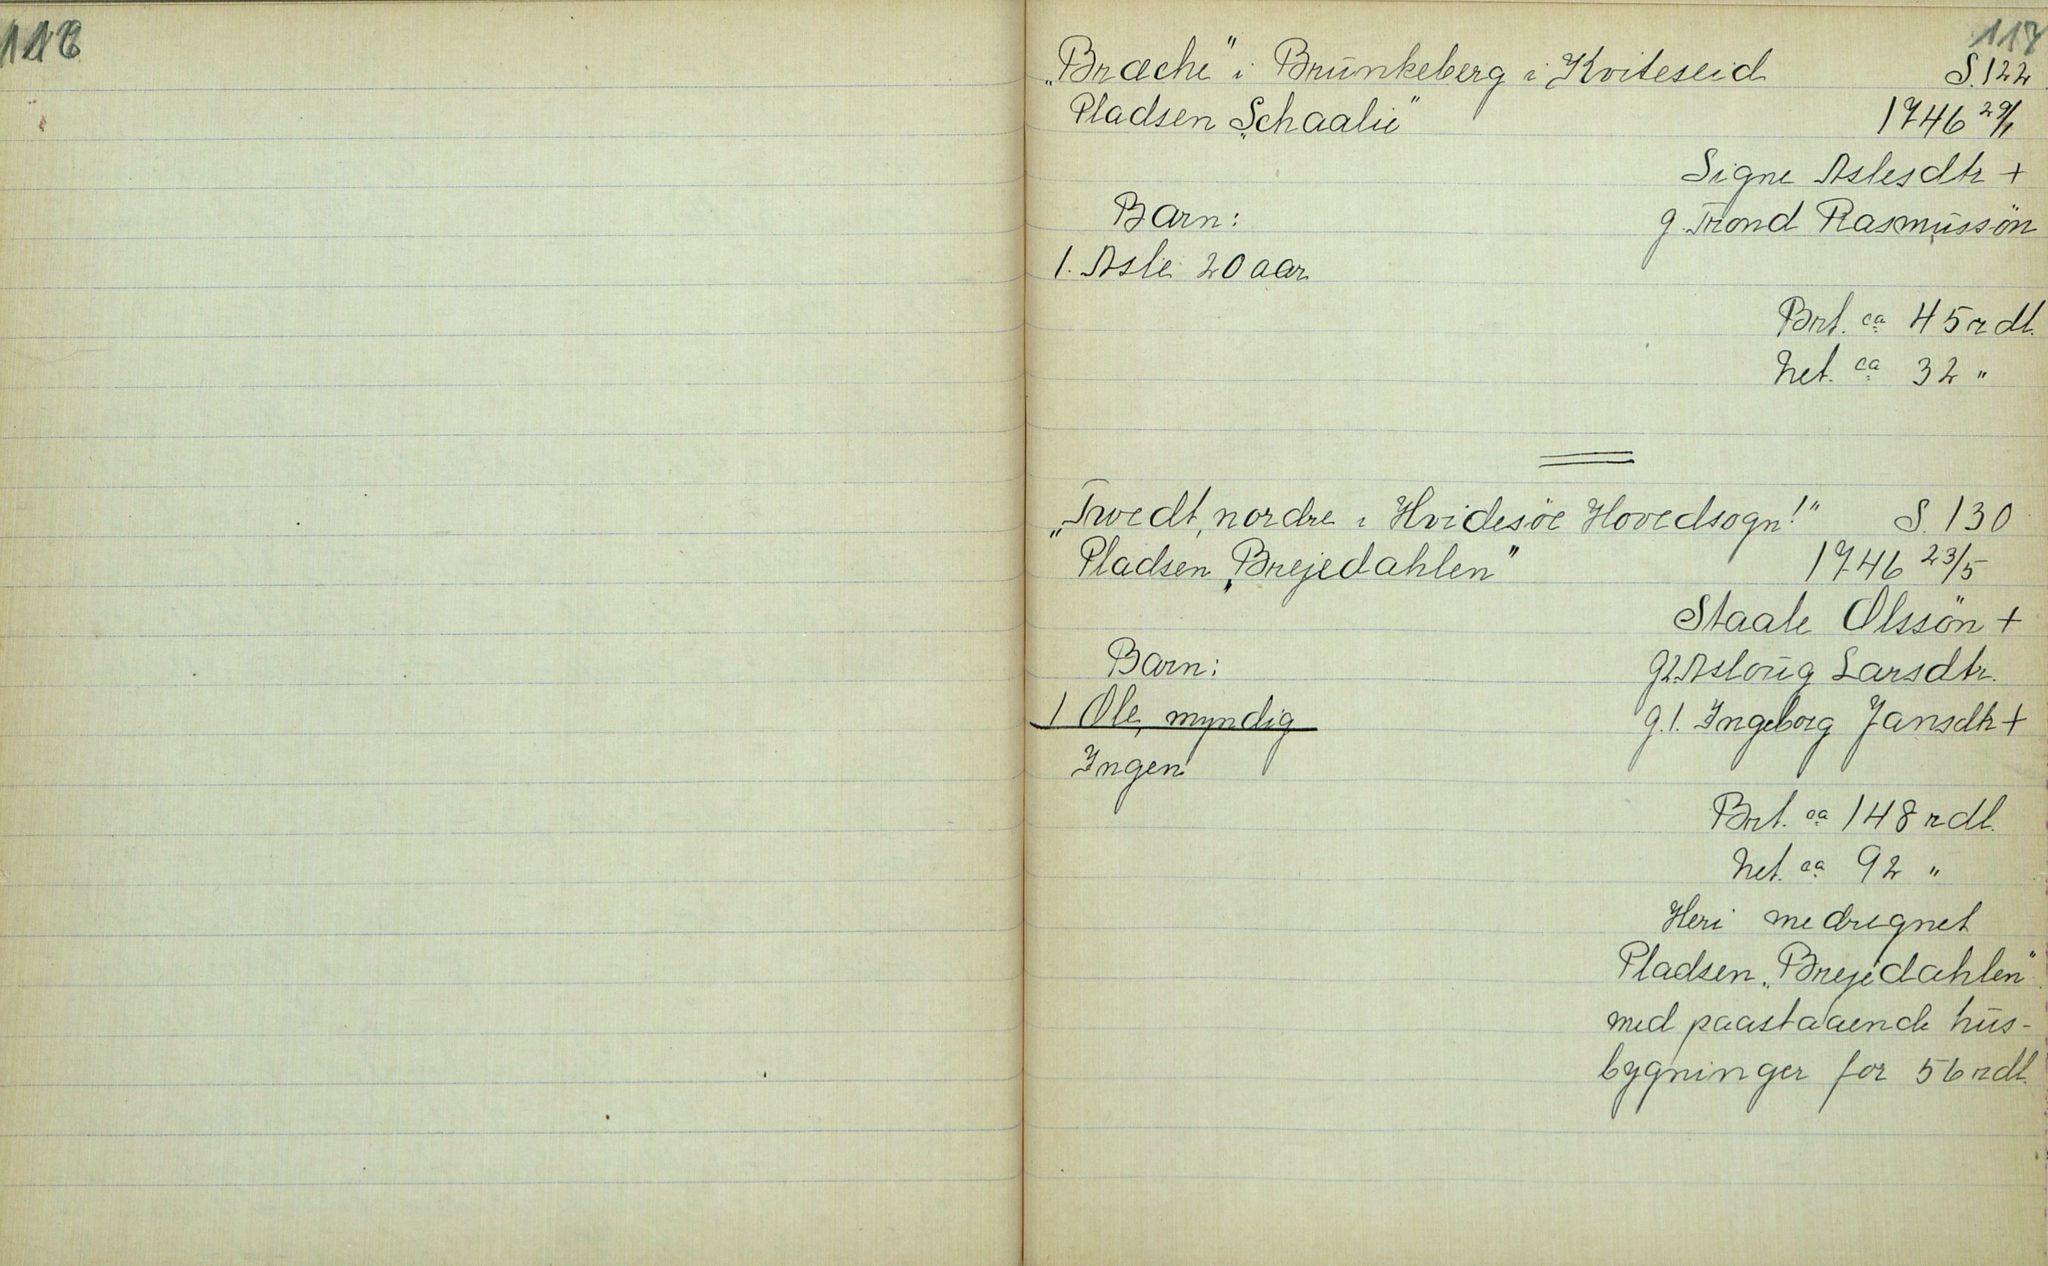 116
117
„Bræche" i Brunkeberg i Kviteseid S. 122
Pladsen „Schaalii" 1746 29/1
Signe Aslesdtr +
Barn: g. Trond Rasmussön
1. Asle 20 aar
Brt. ca 45 rdl.
Net. ca 32 "
„Tvedt, nordre i Hvidesöe Hovedsogn!" S. 130
Pladsen „Brejedahlen" 1746 23/5
Staale Olssön +
Barn: g2. Asloug Larsdtr.
1 Ole, myndig g.1. Ingeborg Jansdtr +
Ingen
Brt. ca 148 rdl.
Net. ca 92 "
Heri medregnet
Pladsen „Brejedahlen"
med paastaaende hus-
bygninger for 56 rdl.